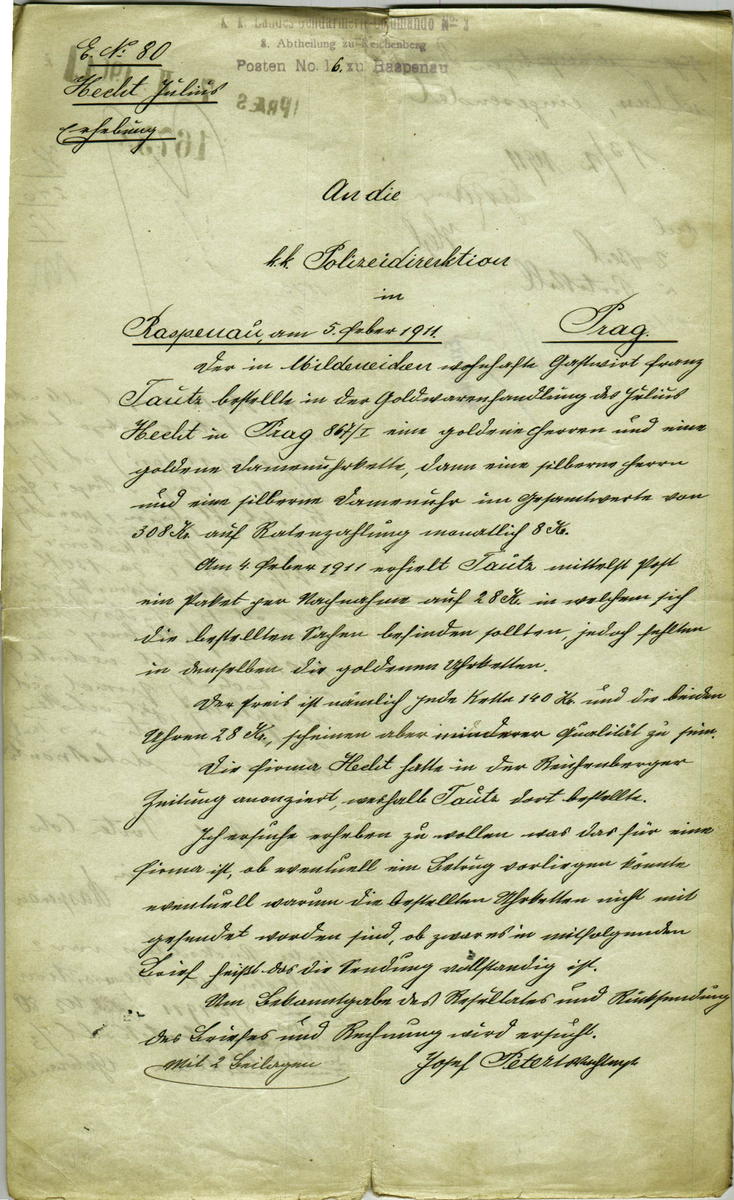 k. k. Landes Gendarmerie-Commando No. 2
2. Abtheilung zu Reichenberg
Posten No. 16. zu Raspenau
E. No. 80
Hecht Julius
Erhebung
PRÄS
An die
k.k. Polizeidirektion
in
Raspenau, am 5. Feber 1911. Prag.
Der in Mildeneichen wohnhafte Gastwirt Franz
Tautz bestellte in der Goldwarenhandlung des Julius
Hecht in Prag 867/I eine goldene Herren und eine
goldene Damenuhrkette, dann eine silberne Herrn
und eine silberne Damenuhr im Gesamtwerte von
308 K. auf Ratenzahlung monatlich 8 K.
Am 4. Feber 1911 erhielt Tautz mittelst Post
ein Paket per Nachnahme auf 28 K. in welchem sich
die bestellten Sachen befinden sollten, jedoch fehlten
in denselben die goldenen Uhrketten.
Der Preis ist nämlich jede Kette 140 K. und die beiden
Uhren 28 K., scheinen aber minderer Qualität zu sein.
Die Firma Hecht hatte in der Reichenberger
Zeitung anonziert, weshalb Tautz dort bestellte.
Ich ersuche erheben zu wollen was das für eine
Firma ist, ob eventuell ein Betrug vorliegen könnte
eventuell warum die bestellten Uhrketten nicht mit
gesendet worden sind, ob zwar es in mitfolgenden
Brief heißt das die Sendung vollständig ist.
Um Bekanntgabe des Resultates und Rücksendung
des Briefes und Rechnung wird ersucht.
Mit 2 Beilagen Josef Peterl